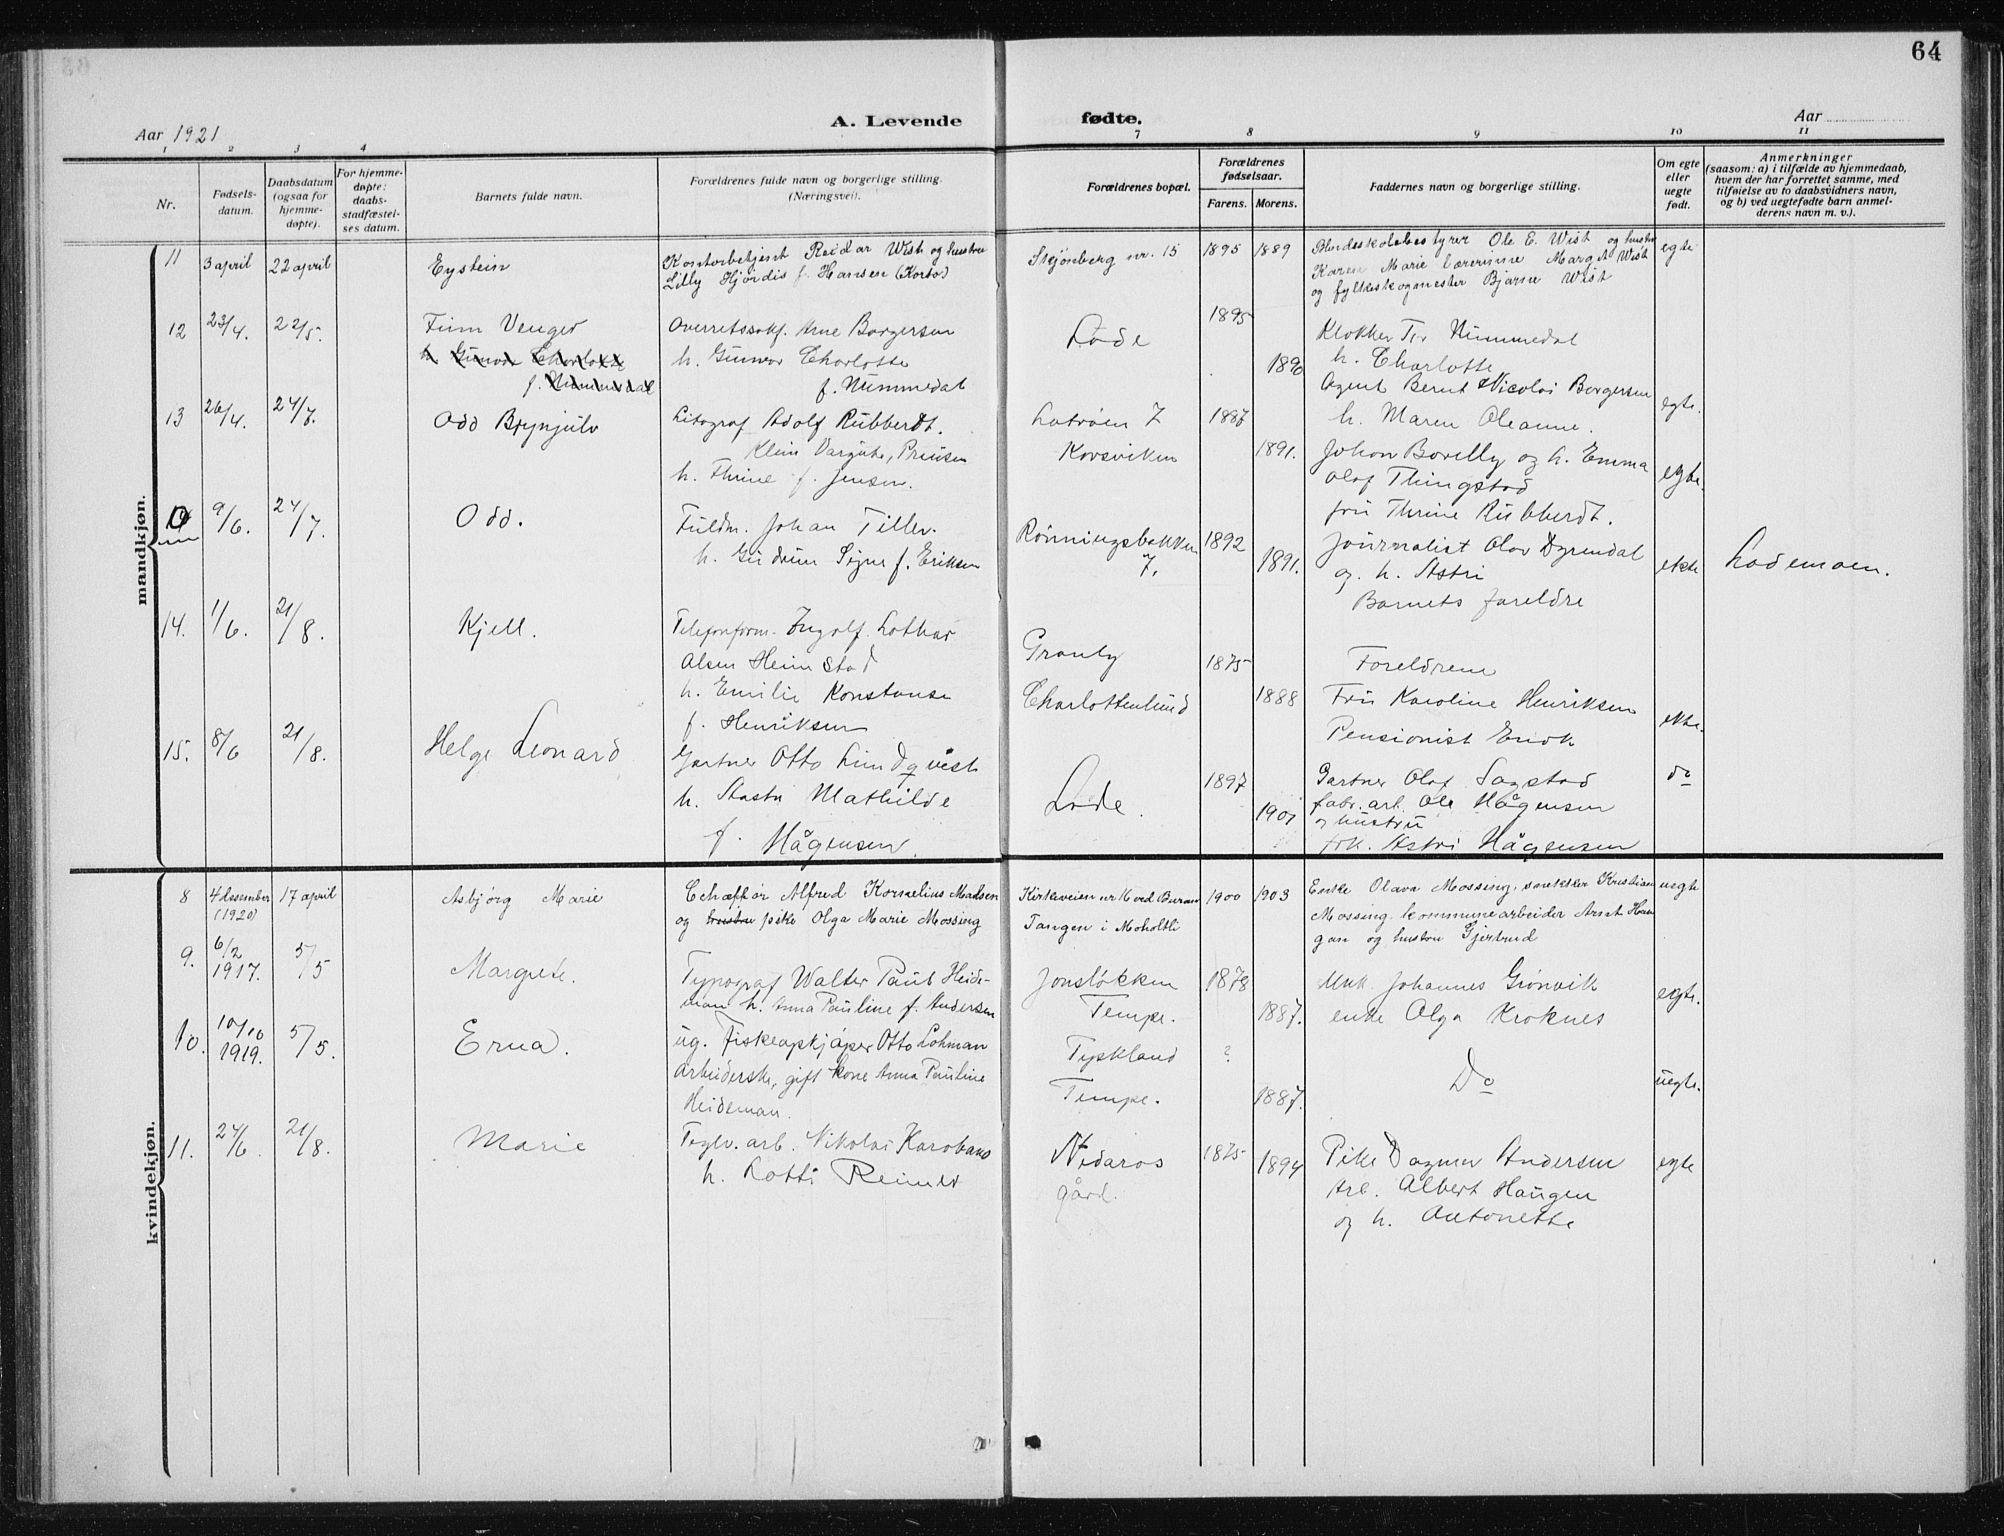 64
Aar 1921
A. Levende fødte.
Aar
1 2 3 4 7 8 9 10 11
Nr.
Fødsels-
datum.
Daabsdatum
(ogsaa for
hjemme-
døpte).
For hjemme-
døpte:
daabs-
stadfæstel-
ses datum.
Barnets fulde navn.
Forældrenes fulde navn og borgerlige stilling.
(Næringsvei).
Forældrenes bopæl.
Forældrenes
fødselsaar.
Farens. Morens.
Faddernes navn og borgerlige stilling.
Om egte
eller
uegte
født.
Anmerkninger
(saasom: a) i tilfælde av hjemmedaab,
hvem der har forrettet samme, med
tilføielse av to daabsvidners navn,
og b) ved uegtefødte barn anmel-
derens navn m. v.).
mandkjøn.
11 3 april 22 april Eystein
Kontorbetjent Reidar Wist og hustru
Lilly Hjørdis f. Hansen
15 1895 1889
Blindeskolebestyrer Ole E. Wist og hustru
Karen Marie lærerinne Margit Wist
og fylkeskogmester Bjarne Wist
egte
12 23/4. 22/5. Finn Venger
h. Gunvor Charlotte
f. Nummedal
Overretssakf. Arne Borgersen
h. Gunvor Charlotte
f. Nummedal
Lade 1895
1890
Klokker Tr. Nummedal
h. Charlotte
Agent Bernt Nicolai Borgersen
h. Maren Oleanne.
egte.
13 26/4. 24/7. Odd Brynjulv
Litograf Adolf Rubberdt.
h. Thrine f. Jensen.
Ladeveien 7
Korsviken
1887
1891.
Johan Borilly og h. Emma
Olaf Thingstad
fru Thrine Rubberdt.
egte.
9/6. 24/7. Odd.
Fuldm. Johan Tiller.
h. Gudrun Signe f. Eriksen
Rønningsbakken
7.
1892
1891.
Journalist Olav Dyrendal
og h. Astri
Barnets foreldre
ekte
Lademoen.
14. 1/6. 21/8. Kjell.
Telefonform. Ingolf Lothar
Alsen Heimstad
h. Emilie Konstanse
f. Henriksen
Granly
Charlottenlund
1875
1888
Foreldrene
Fru Karoline Henriksen
Pensionist
ekte.
15. 8/6 21/8. Helge Leonard
Gartner Otto Lundqvist
h. Aasta Mathilde
f. Hågensen.
Lade.
1897
1901
Gartner Olaf Sagstad
fabr. arb. Ole Hågensen
og hustru
frk. Astri Hågensen
do
kvindekjøn.
8 4 desember
(1920) 17 april Asbjørg Marie
Chaffør Alfred Kornelius Madsen
og hustru pike Olga Marie Mossing
Kirkeveien nr 16 ved Buran
Tangen i Moholtli
1900 1903
Enke Olava Mossing, snekker Kristian
Mossing. kommunearbeider Arnt Hau
gan og hustru Gjertrud
uegte
9. 6/2
1917. 5/5 Margrete.
Typograf Walter Paul Heide-
man h. Anna Pauline f. Andersen
Jonsløkken
Tempe.
1878
1887.
Mak. Johannes Grønvik
enke Olga Kroknes
egte.
10. 10/10
1919. 5/5. Erna.
ug. Fiskeopkjøper Otto Lohman
Arbeiderske, gift kone Anna Pauline
Heideman.
Tyskland
Tempe.
?
1887.
Do
uegte.
11. 24/6. 21/8. Marie
Teglv. arb. Nikolai Karoband
h. Lotti Reimer
Nidaros
gård.
1875
1894
Pike Dagmar Andersen
Arb. Albert Haugen
og h. Antonette
egte